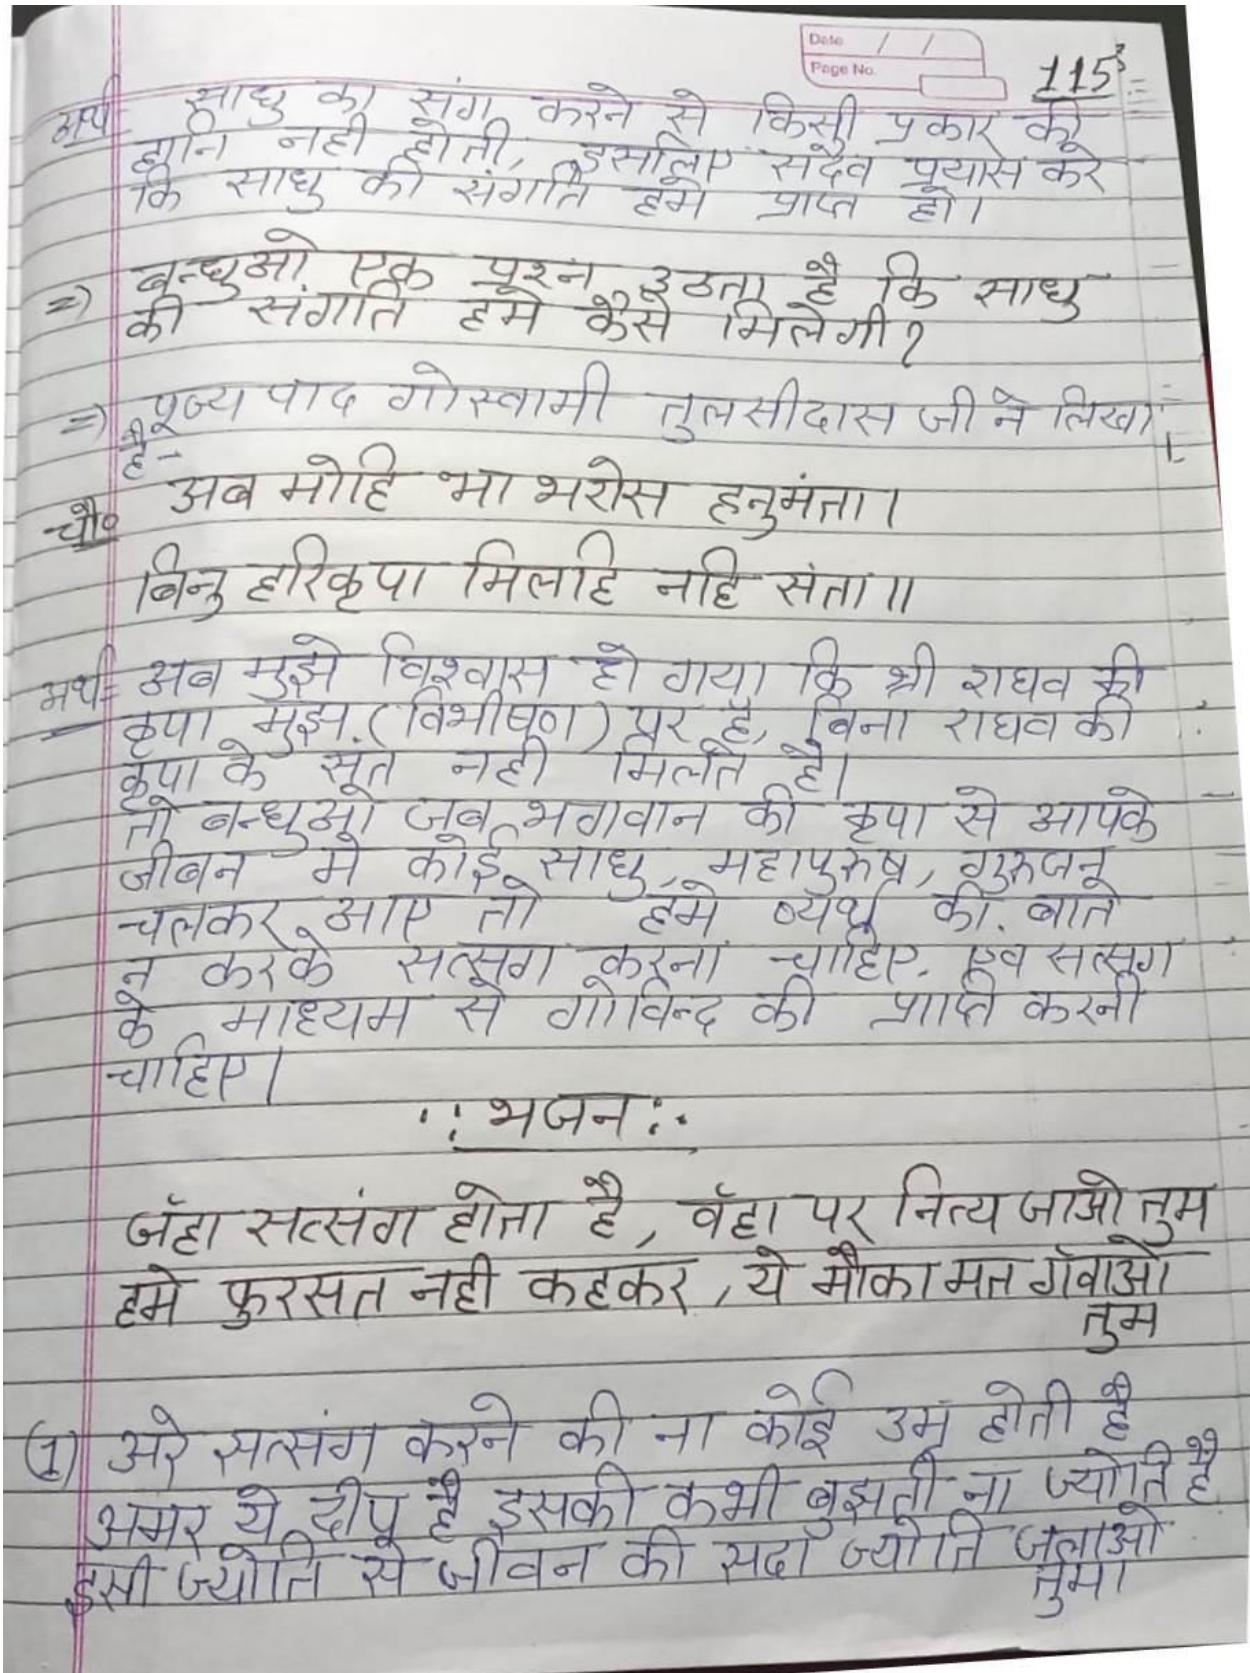 Date / /
Page No.
115
अर्थ- साधु का संग करने से किसी प्रकार की
हानि नही होती, इसलिए सदैव प्रयास करे
कि साधु की संगति हमे प्राप्त हो।
=) बन्धुओ एक प्रश्न उठता है कि साधु
की संगति हमे कैसे मिलेगी?
=) पूज्य पाद गोस्वामी तुलसीदास जी ने लिखा
है-
चौ० अब मोहि भा भरोस हनुमंता।
बिनु हरिकृपा मिलहि नहि संता॥
अर्थ- अब मुझे विश्वास हो गया कि श्री राघव की
कृपा मुझ (विभीषण) पर है, बिना राघव की
कृपा के संत नही मिलते है।
तो बन्धुओ जब भगवान की कृपा से आपके
जीबन मे कोई साधु, महापुरुष, गुरुजन
चलकर आए तो हमे व्यर्थ की बाते
न करके सत्संग करना चाहिए. एंव सत्संग
के माध्यम से गोविन्द की प्राप्ति करनी
चाहिए।
∴ भजन ∴
जँहा सत्संग होता है, वँहा पर नित्य जाओ तुम
हमे फुरसत नही कहकर, ये मौका मत गँवाओ
तुम
(1) अरे सत्संग करने की ना कोई उम्र होती है
अमर ये दीप है इसकी कभी बुझती ना ज्योति है
इसी ज्योति से जीवन की सदा ज्योति जलाओ
तुम।